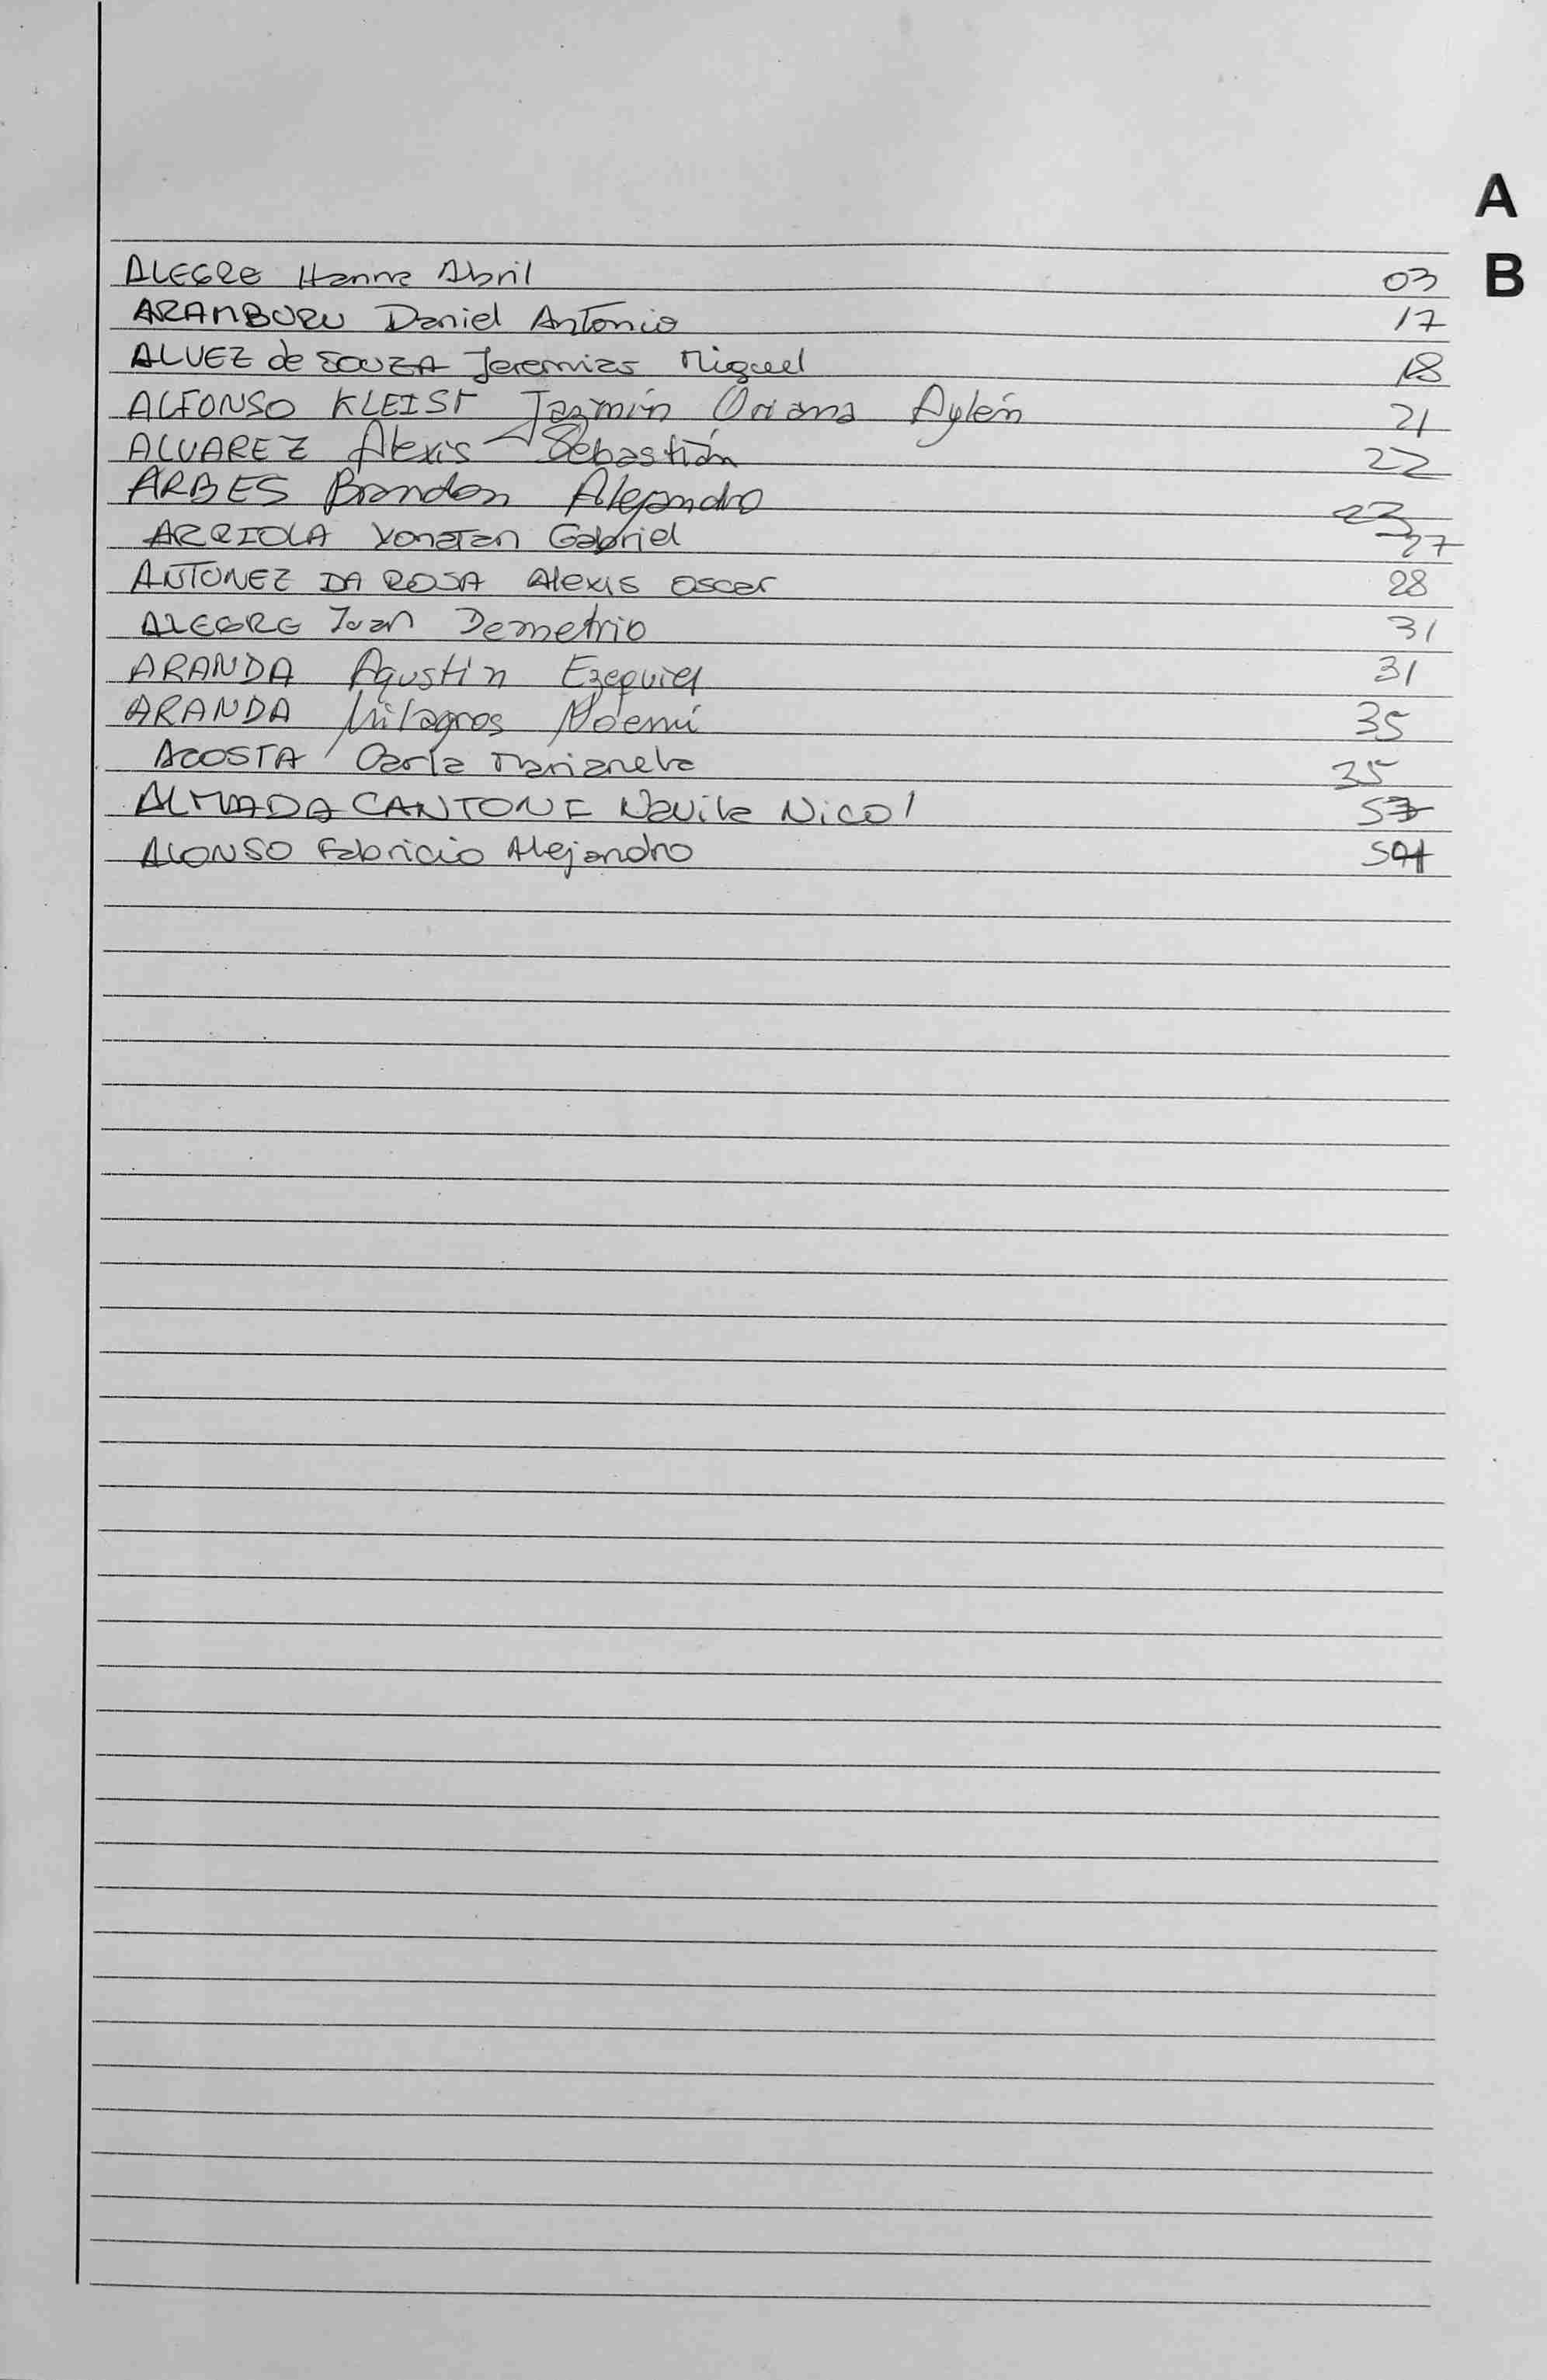 A
B
ALEGRE Hanna Abril 03
ARAMBURU Daniel Antonio 17
ALVEZ de SOUZA Jeremias Miguel 18
ALFONSO KLEIST Jazmín Oriana Aylén 21
ALVAREZ Alexis Sebastián 22
ARBES Brandon Alejandro 23
ARRIOLA Yonatan Gabriel 27
ANTUNEZ DA ROSA Alexis Oscar 28
ALEGRE Juan Demetrio 31
ARANDA Agustín Ezequiel 31
ARANDA Milagros Noemí 35
ACOSTA Carla Marianela 35
ALMADA CANTONE Nicol
ALONSO Fabricio Alejandro